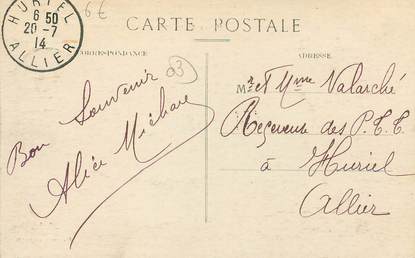 HURIEL
6 50
20-7
14
ALLIER
6€
CARTE POSTALE
CORRESPONDANCE
ADRESSE
03
Bon Souvenir
Alice
Mr et Mme Valarché
Receveuse des P.T.T.
à Huriel
Allier